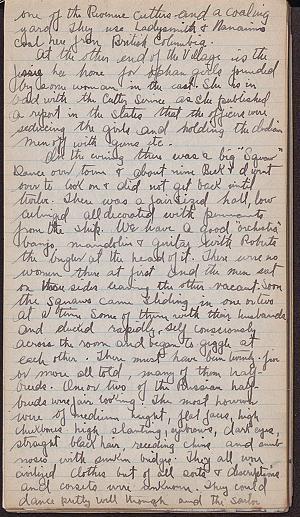 one of the Revenue Cutters and a coaling
yard. They use Ladysmith & Nanaimo
coal here from British Columbia.
At the other end of the Village is the
Jesse Lee home for orphan girls founded
by some woman in the east. She is in
bad with the Cutter Service as she published
a report in the States that the officers were
seducing the girls and holding the Indian
men off with guns etc.
In the evening there was a big "Squaw"
Dance over town & about nine Beck & I went
over to look on & did not get back until
twelve. There was a fair sized hall, low
ceilinged all decorated with pennants
from the ship. We have a good "orchestra"
banjo, mandolin & guitar with Roberts
the bugler at the head of it. There were no
women there at first and the men sat
on three sides leaving the other vacant. Soon
the squaws came sliding in one or two
at a time. Some of them with their husbands
and ducked rapidly, self consciously
across the room and began to giggle at
each other. There must have been twenty-five
or more all told, many of them half-
breeds. One or two of the Russian half-
breeds were fair looking. The most however
were of medium height, flat faces, high
cheekbones high slanting eyebrows, dark eyes,
straight black hair, receding chins and
noses with sunken bridges. They all wore
civilized clothes but of all sorts & descriptions
and corsets were unknown. They could
dance pretty well though and the sailor